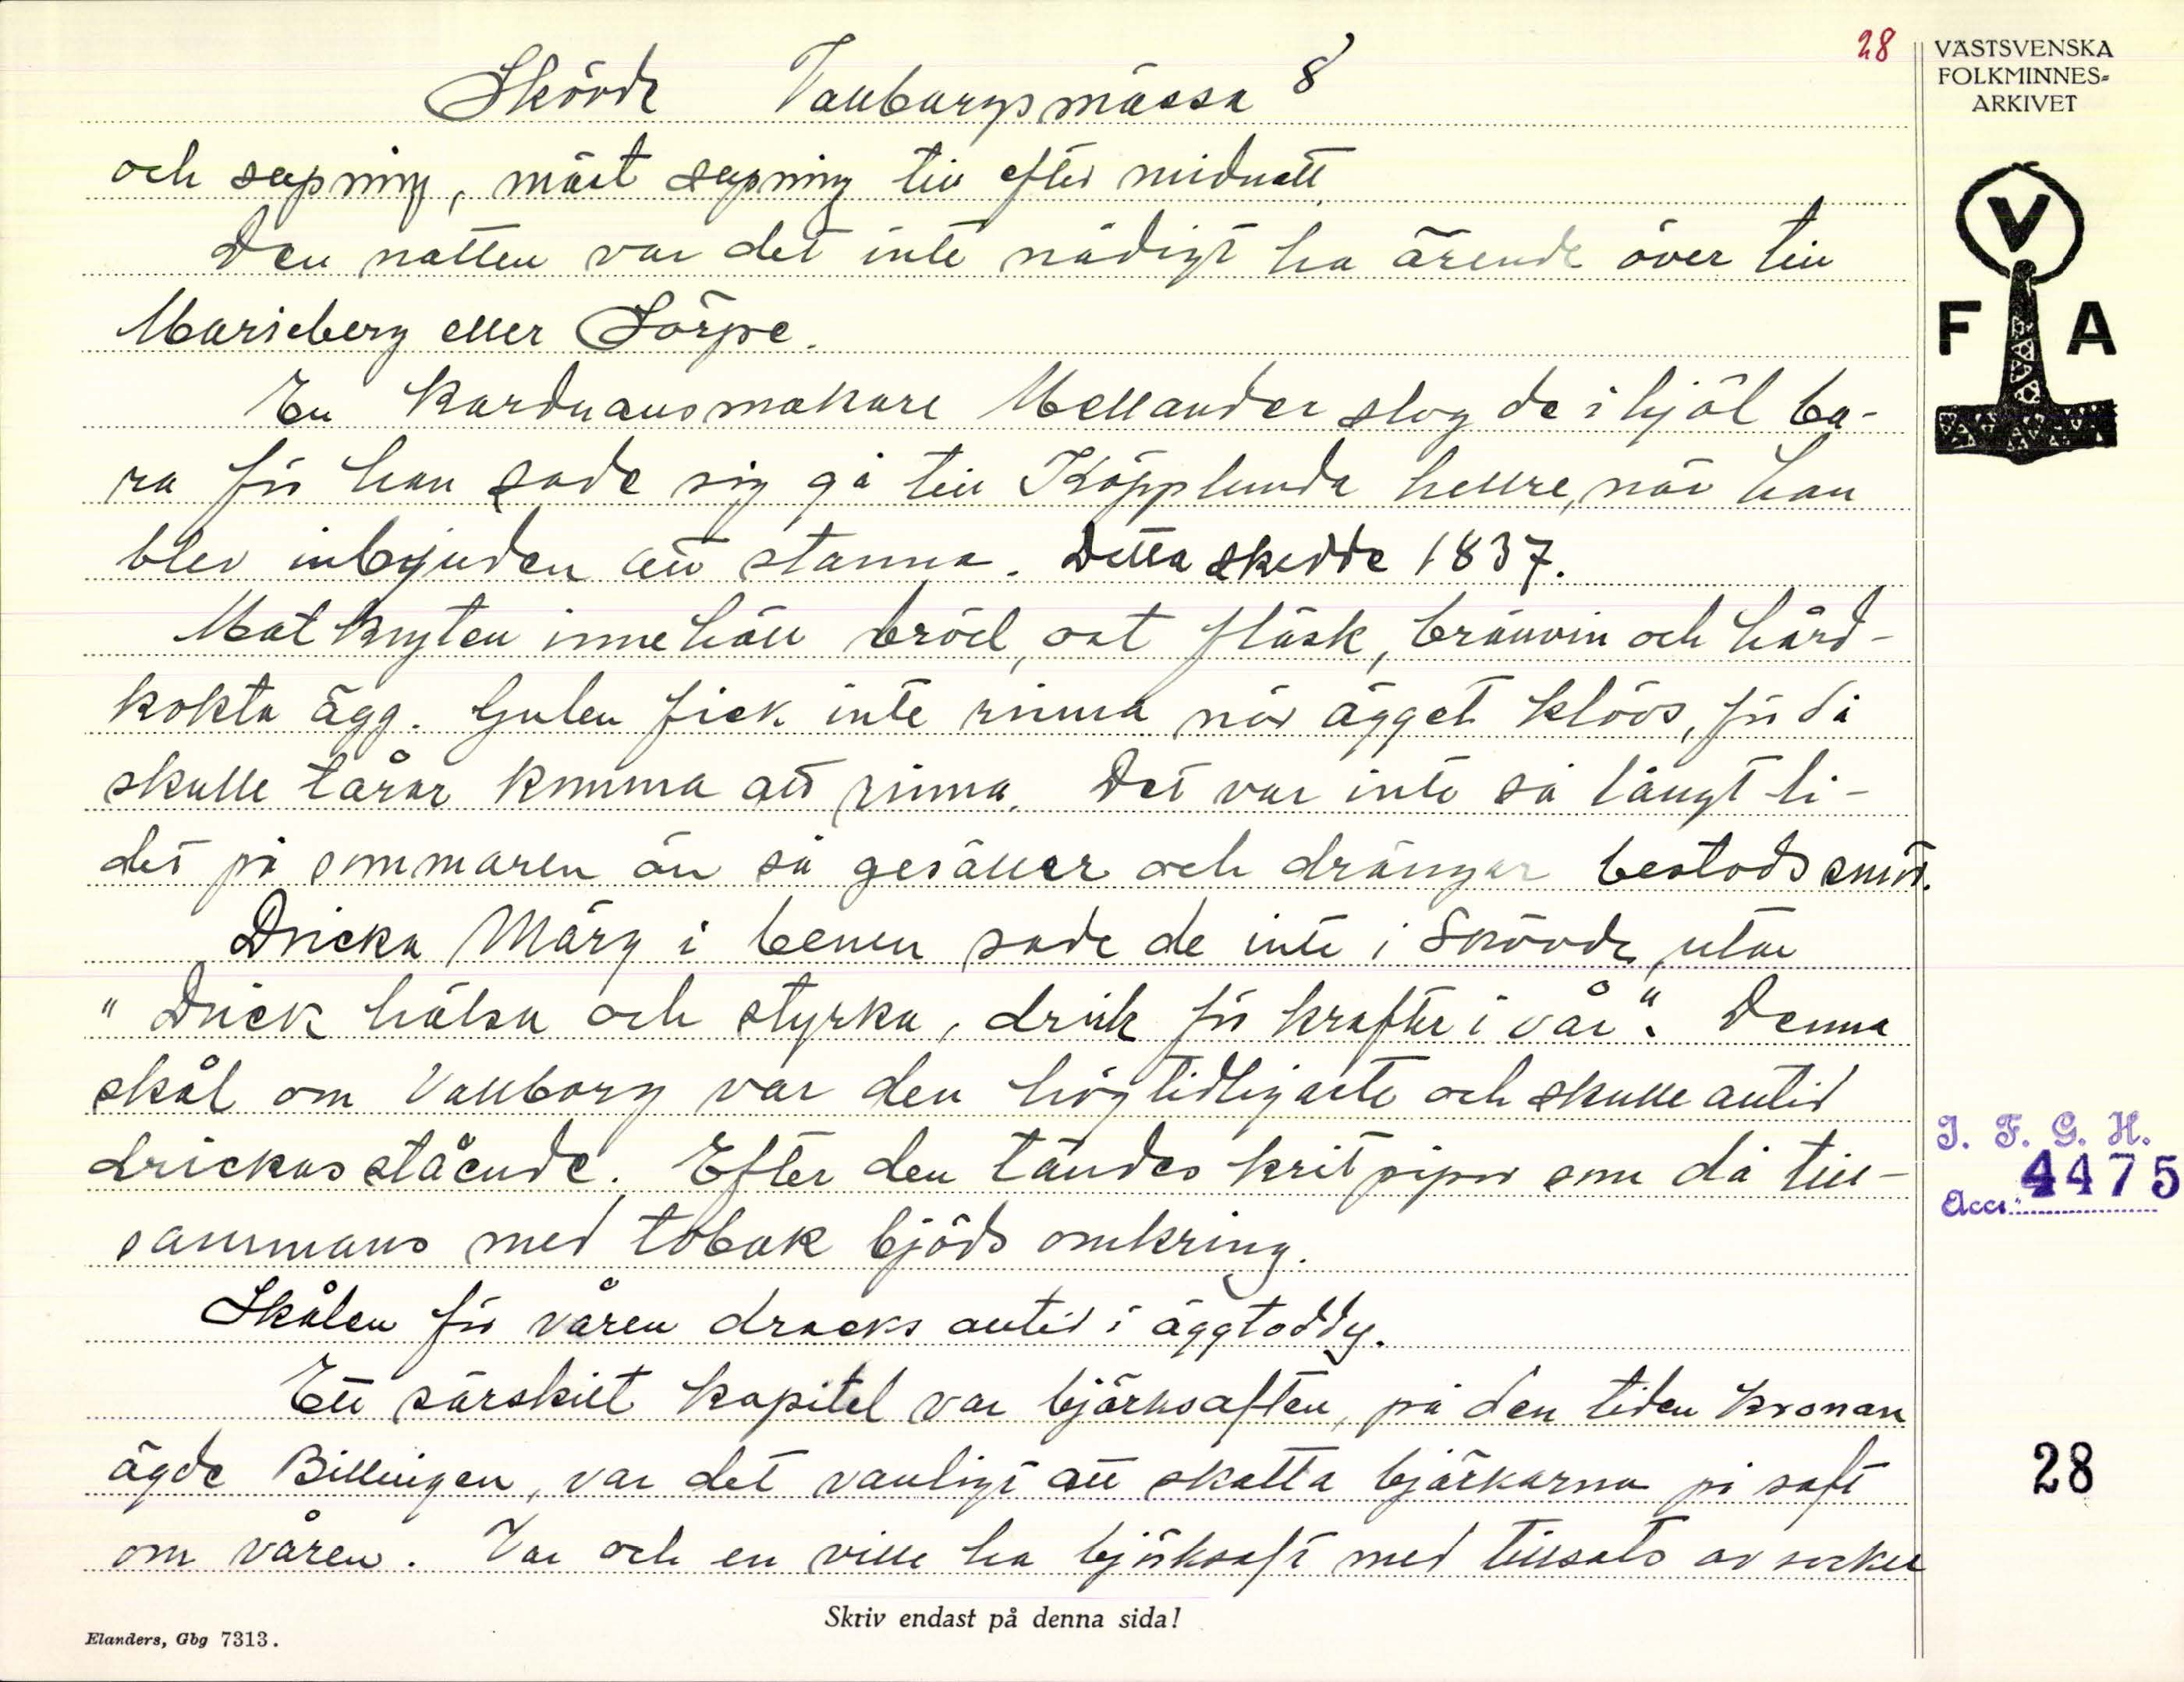 28
VÄSTSVENSKA
FOLKMINNES-
ARKIVET
Skövde Valborgsmässa 8
och supning, mäst supning till efter midnatt
Den natten var det inte nådigt ha ärende över till
Marieberg eller Sörpe.
En karduansmakare Mellander slog de ihjäl ba-
ra för han sade sig gå till Käpplunda hellre, när han
blev inbjuden att stanna. Detta skedde 1837.
Matknyten innehöll bröd, ost fläsk, bränvin och hård-
kokta ägg. Gulen fick inte rinna när ägget klövs, för då
skulle tårar komma att rinna. Det var inte så långt li-
det på sommaren än så gesäller och drängar bestods smör.
Dricka Märg i benen sade de inte i Skövde utan
"Drick hälsa och styrka, drick för krafter i vår". Denna
skål om Valborg var den högtidligaste och skulle alltid
drickas stående. Efter den tändes kritpipor som då till-
sammans med tobak bjöds omkring.
Skålen för våren dracks alltid i äggtoddy.
Ett särskilt kapitel var björksaften, på den tiden kronan
ägde Billingen, var det vanligt att skatta björkarna på saft
om våren. Var och en ville ha björksaft med tillsats av socker
V
F A
I. F. G. H.
Acc: 4475
28
Skriv endast på denna sida!
Elanders, Gbg 7313.